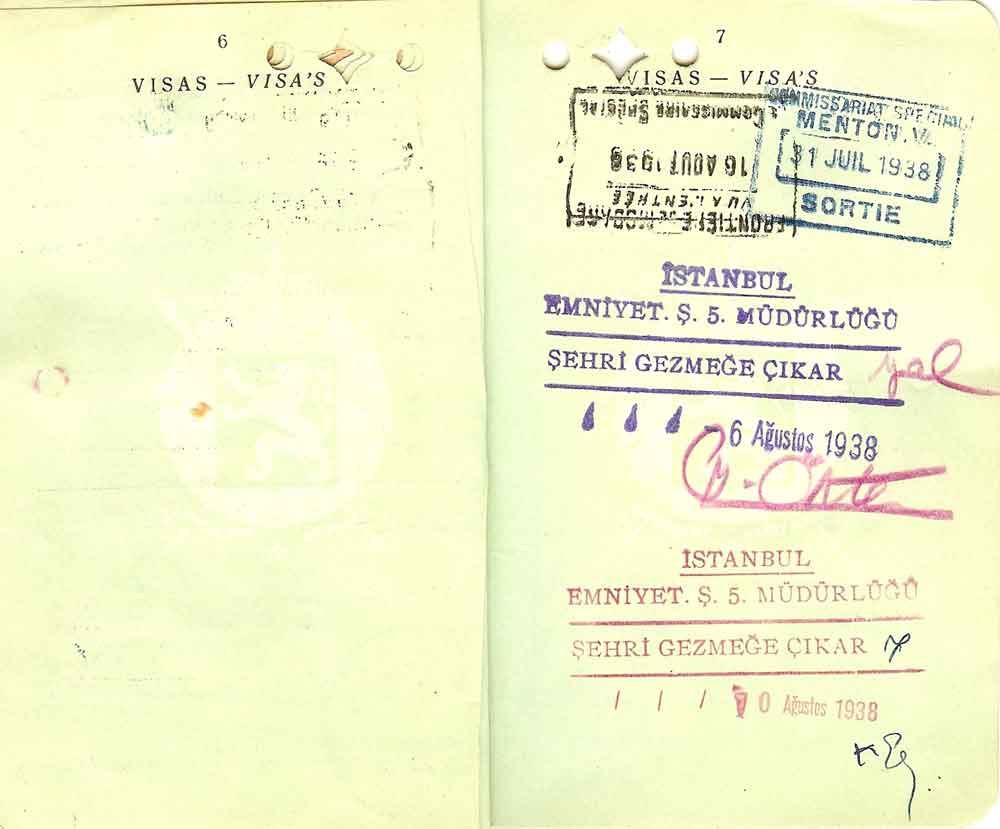 6
VISAS — VISA'S
7
VISAS — VISA'S
COMMISSARIAT SPECIAL
MENTON.
31 JUIL 1938
SORTIE
COMMISSAIRE SPÉCIAL
16 AOUT 1938
VU A L'ENTRÉE
İSTANBUL
EMNİYET. Ş. 5. MÜDÜRLÜĞÜ
ŞEHRİ GEZMEĞE ÇIKAR
- 6 Ağustos 1938
İSTANBUL
EMNİYET. Ş. 5. MÜDÜRLÜĞÜ
ŞEHRİ GEZMEĞE ÇIKAR
0 Ağustos 1938